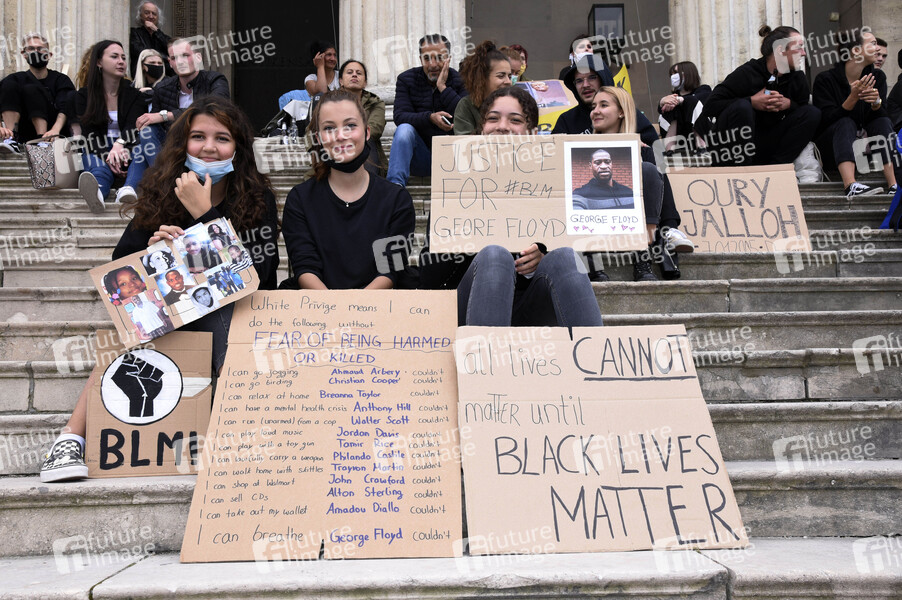 JUSTICE
FOR #BLM
GEORE FLOYD
GEORGE FLOYD
OURY
JALLOH
BLM
White Privige means I can
do the following without
FEAR OF BEING HARMED
OR KILLED
I can go jogging Ahmaud Arbery couldn't
I can go birding Christian Cooper couldn't
I can relax at home Breanna Taylor couldn't
I can have a mental health crisis Anthony Hill couldn't
I can run (unarmed) from a cop Walter Scott couldn't
I can play loud music Jordan Davis couldn't
I can play with a toy gun Tamir Rice couldn't
I can carry a weapon Philando Castile couldn't
I can walk home with skittles Trayvon Martin couldn't
I can shop at Walmart John Crawford couldn't
I can sell CDs Alton Sterling couldn't
I can take out my wallet Amadou Diallo couldn't
I can breathe George Floyd couldn't
all lives CANNOT
matter until
BLACK LIVES
MATTER
future image